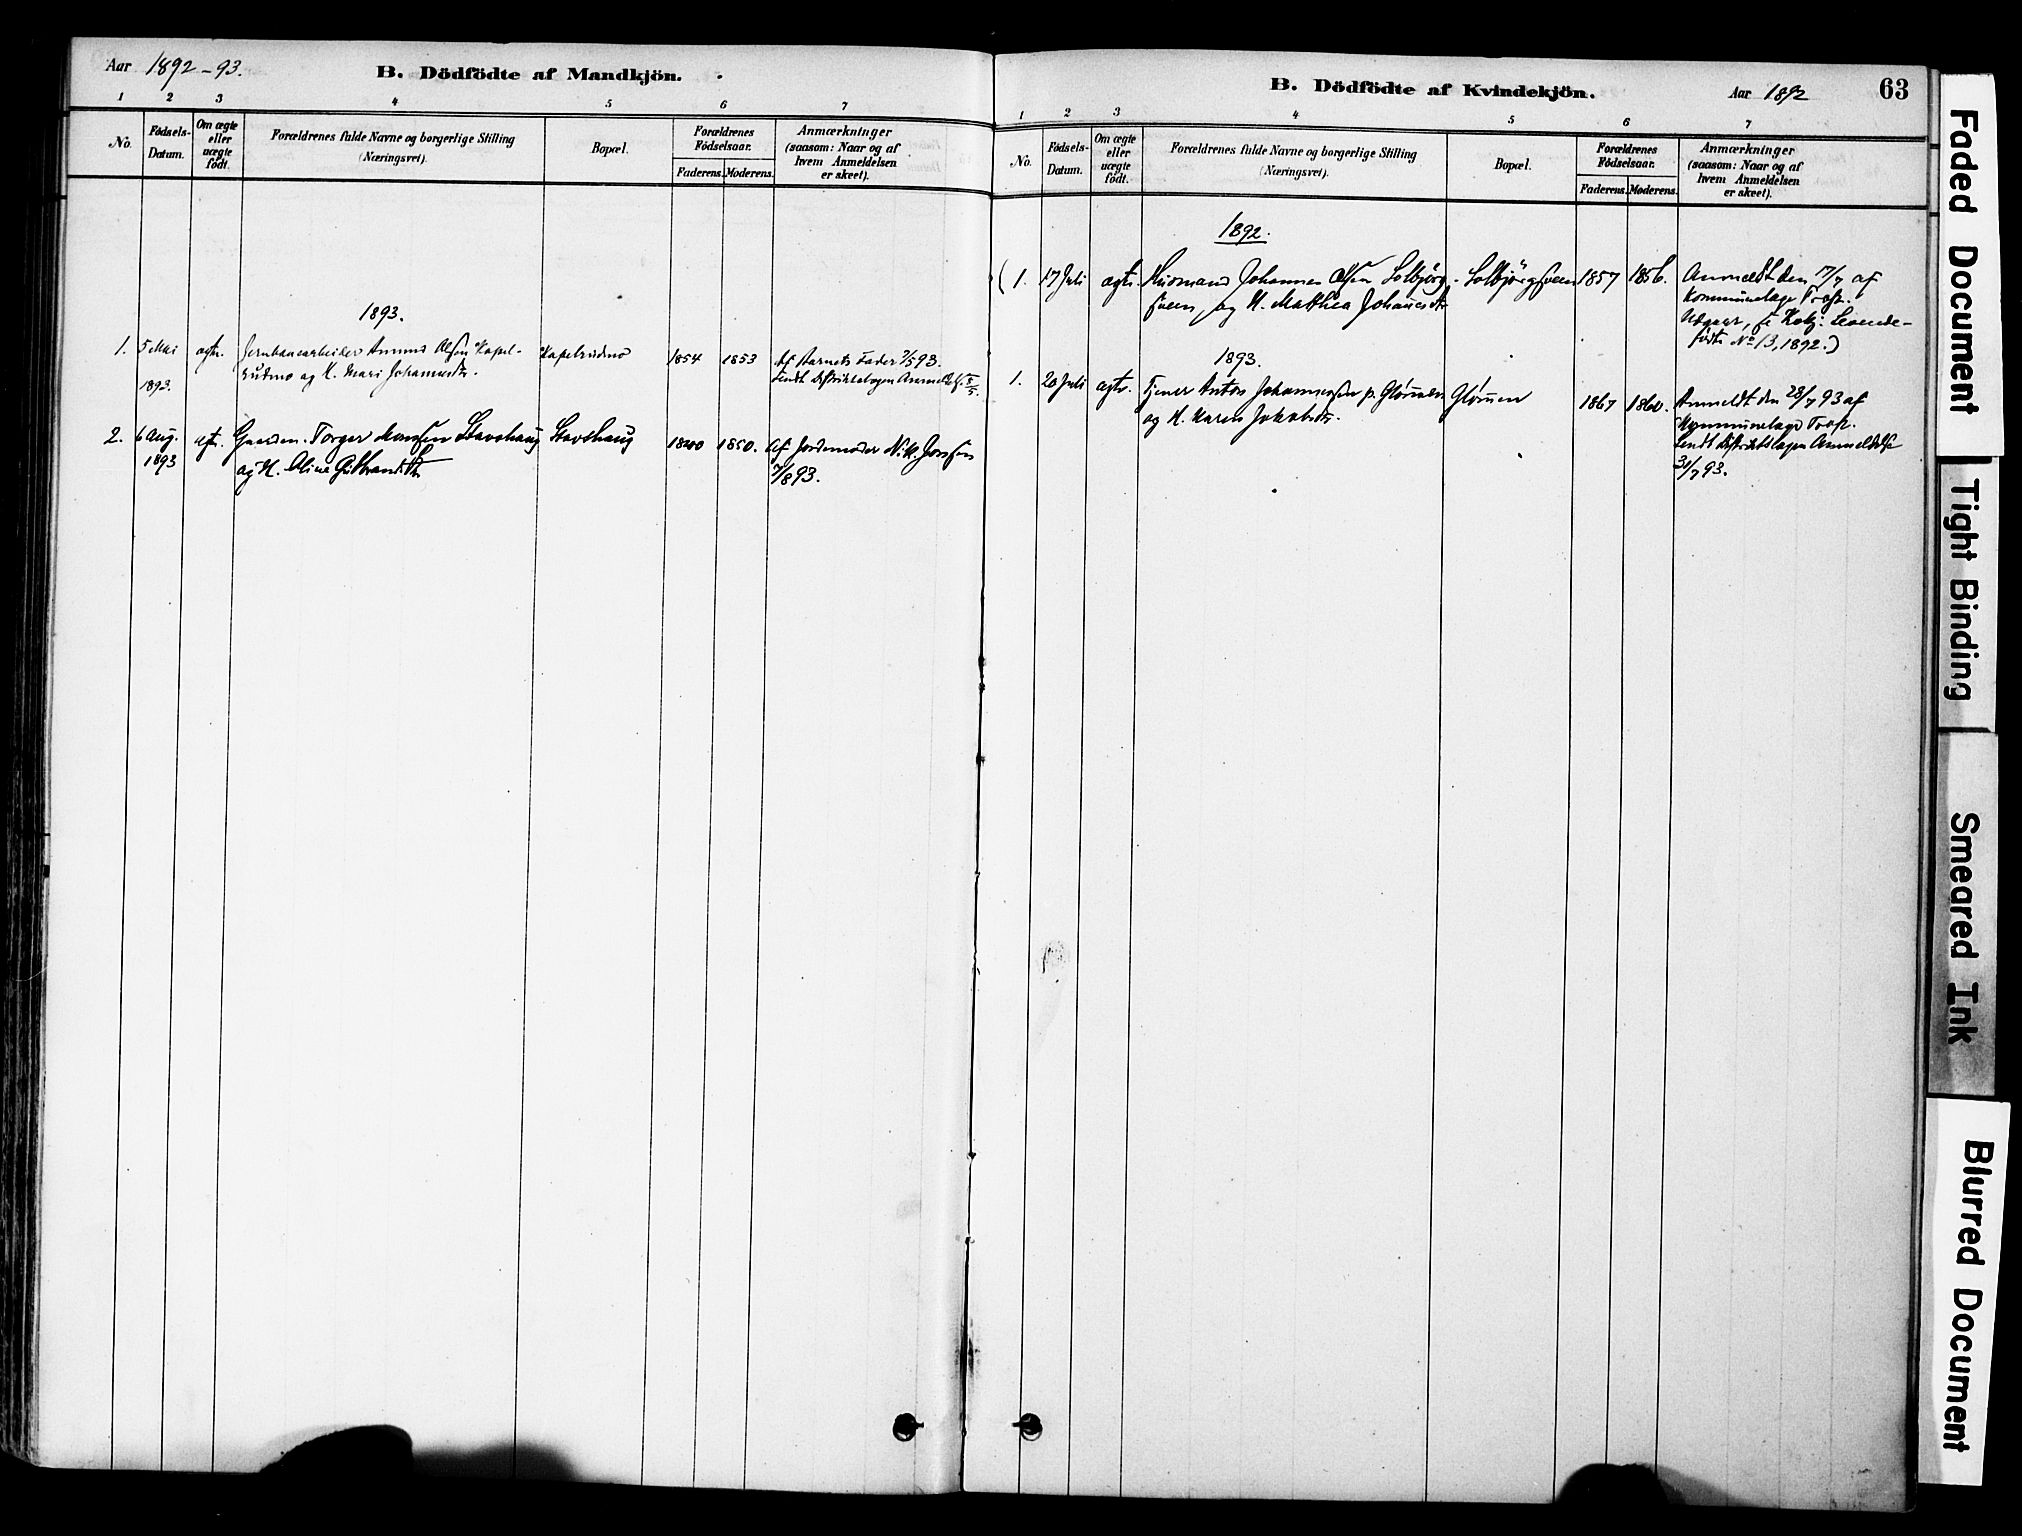 Aar 1892-93.
B. Dödfödte af Mandkjön.
1 2 3 4 5 6 7
No.
Födsels-
Datum.
Om ægte
eller
uægte
født.
Forældrenes fulde Navne og borgerlige Stilling
(Næringsvei).
Bopæl.
Forældrenes
Födselsaar.
Faderens. Moderens.
Anmærkninger
(saasom: Naar og af
hvem Anmeldelsen
er skeet).
1893.
1. 5 Mai ægte. Jernbanearbeider Amund Olsen Kapel- Kapelrudmo 1854 1853 Af Barnets Fader 7/5 93.
1893. rudmo og H. Mari Johannesdtr. Sendt Distriktslægen
2. 6 Aug. ægte. Gaardm. Torger Hansen Stavshaug Stavshaug 1840 1850. Af Jordemoder
1893 og H. Oline Gulbrandsdtr. 7/8 93.
B. Dödfödte af Kvindekjön.
Aar 1892
63
1 2 3 4 5 6 7
No.
Födsels-
Datum.
Om ægte
eller
uægte
født.
Forældrenes fulde Navne og borgerlige Stilling
(Næringsvei).
Bopæl.
Forældrenes
Födselsaar.
Faderens. Moderens.
Anmærkninger
(saasom: Naar og af
hvem Anmeldelsen
er skeet).
1892.
(1. 17 Juli ægte. Husmand Johannes Olsen Solbjørg- Solbjørgsveen 1857 1856. Anmeldt den 17/7 af
sveen og H. Mathea Johannesdtr. Kommunelæge
Udgaar, se Levende-
födte No 13, 1892.)
1893.
1. 20 Juli ægte. Tjener Anton Johannessen p. Glømmen Glømmen 1867 1860. Anmeldt den 28/7 93 af
og H. Karen Jakobsdtr. Kommunelæge
Sendt Distriktslægen Anmeldelse
31/7 93.
Faded Document
Tight Binding
Smeared Ink
Blurred Document